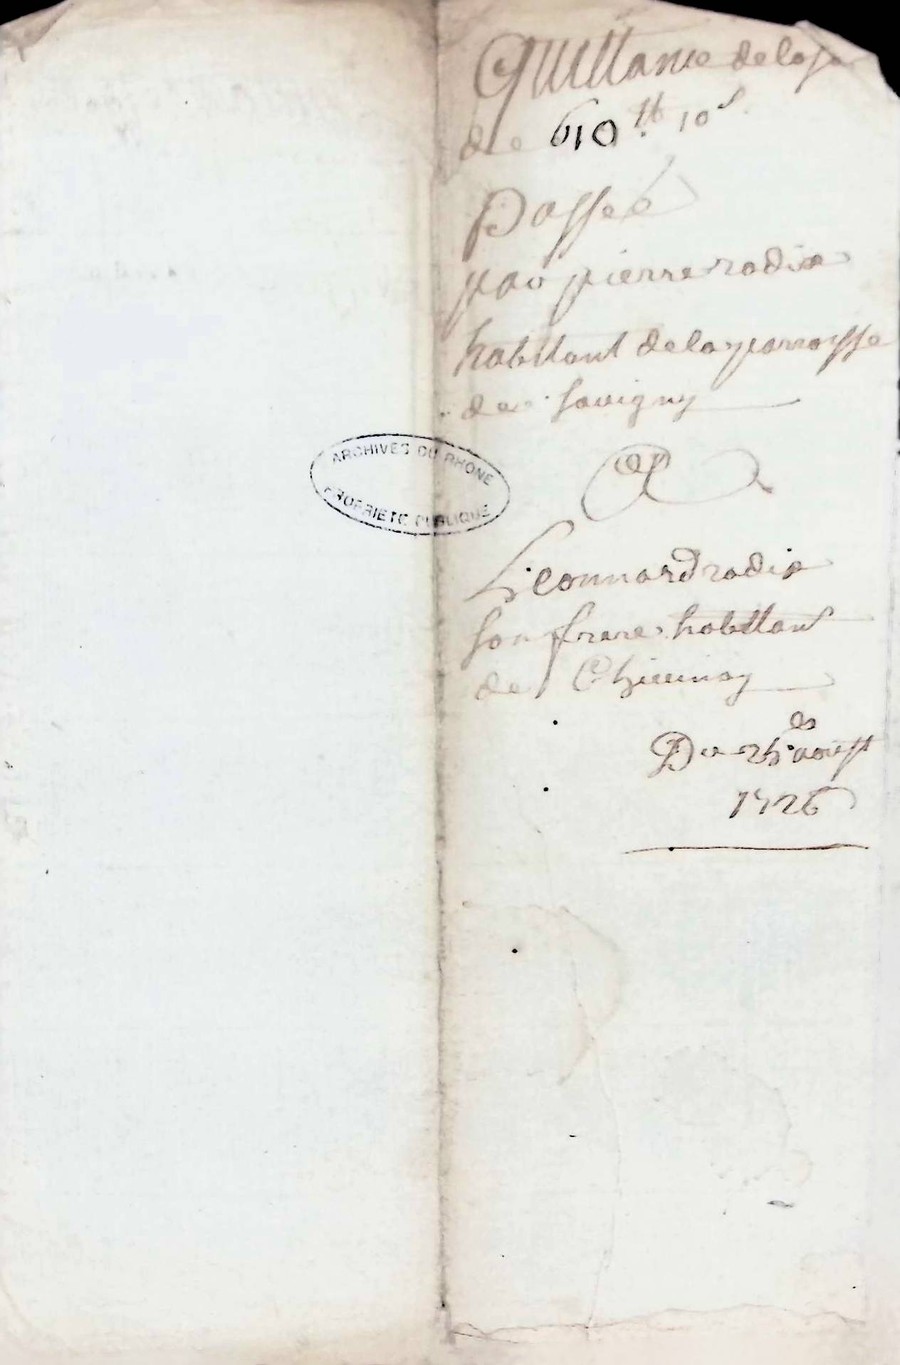 Quittance de la so
de 610 ₶ 10 s
Passée
par pierre radix
habitant de la parroisse
de Savigny
A
Leonnard radix
son frere habitant
de Chivinay
Du 25 aoust
1726
ARCHIVES DU RHONE
PROPRIETE PUBLIQUE